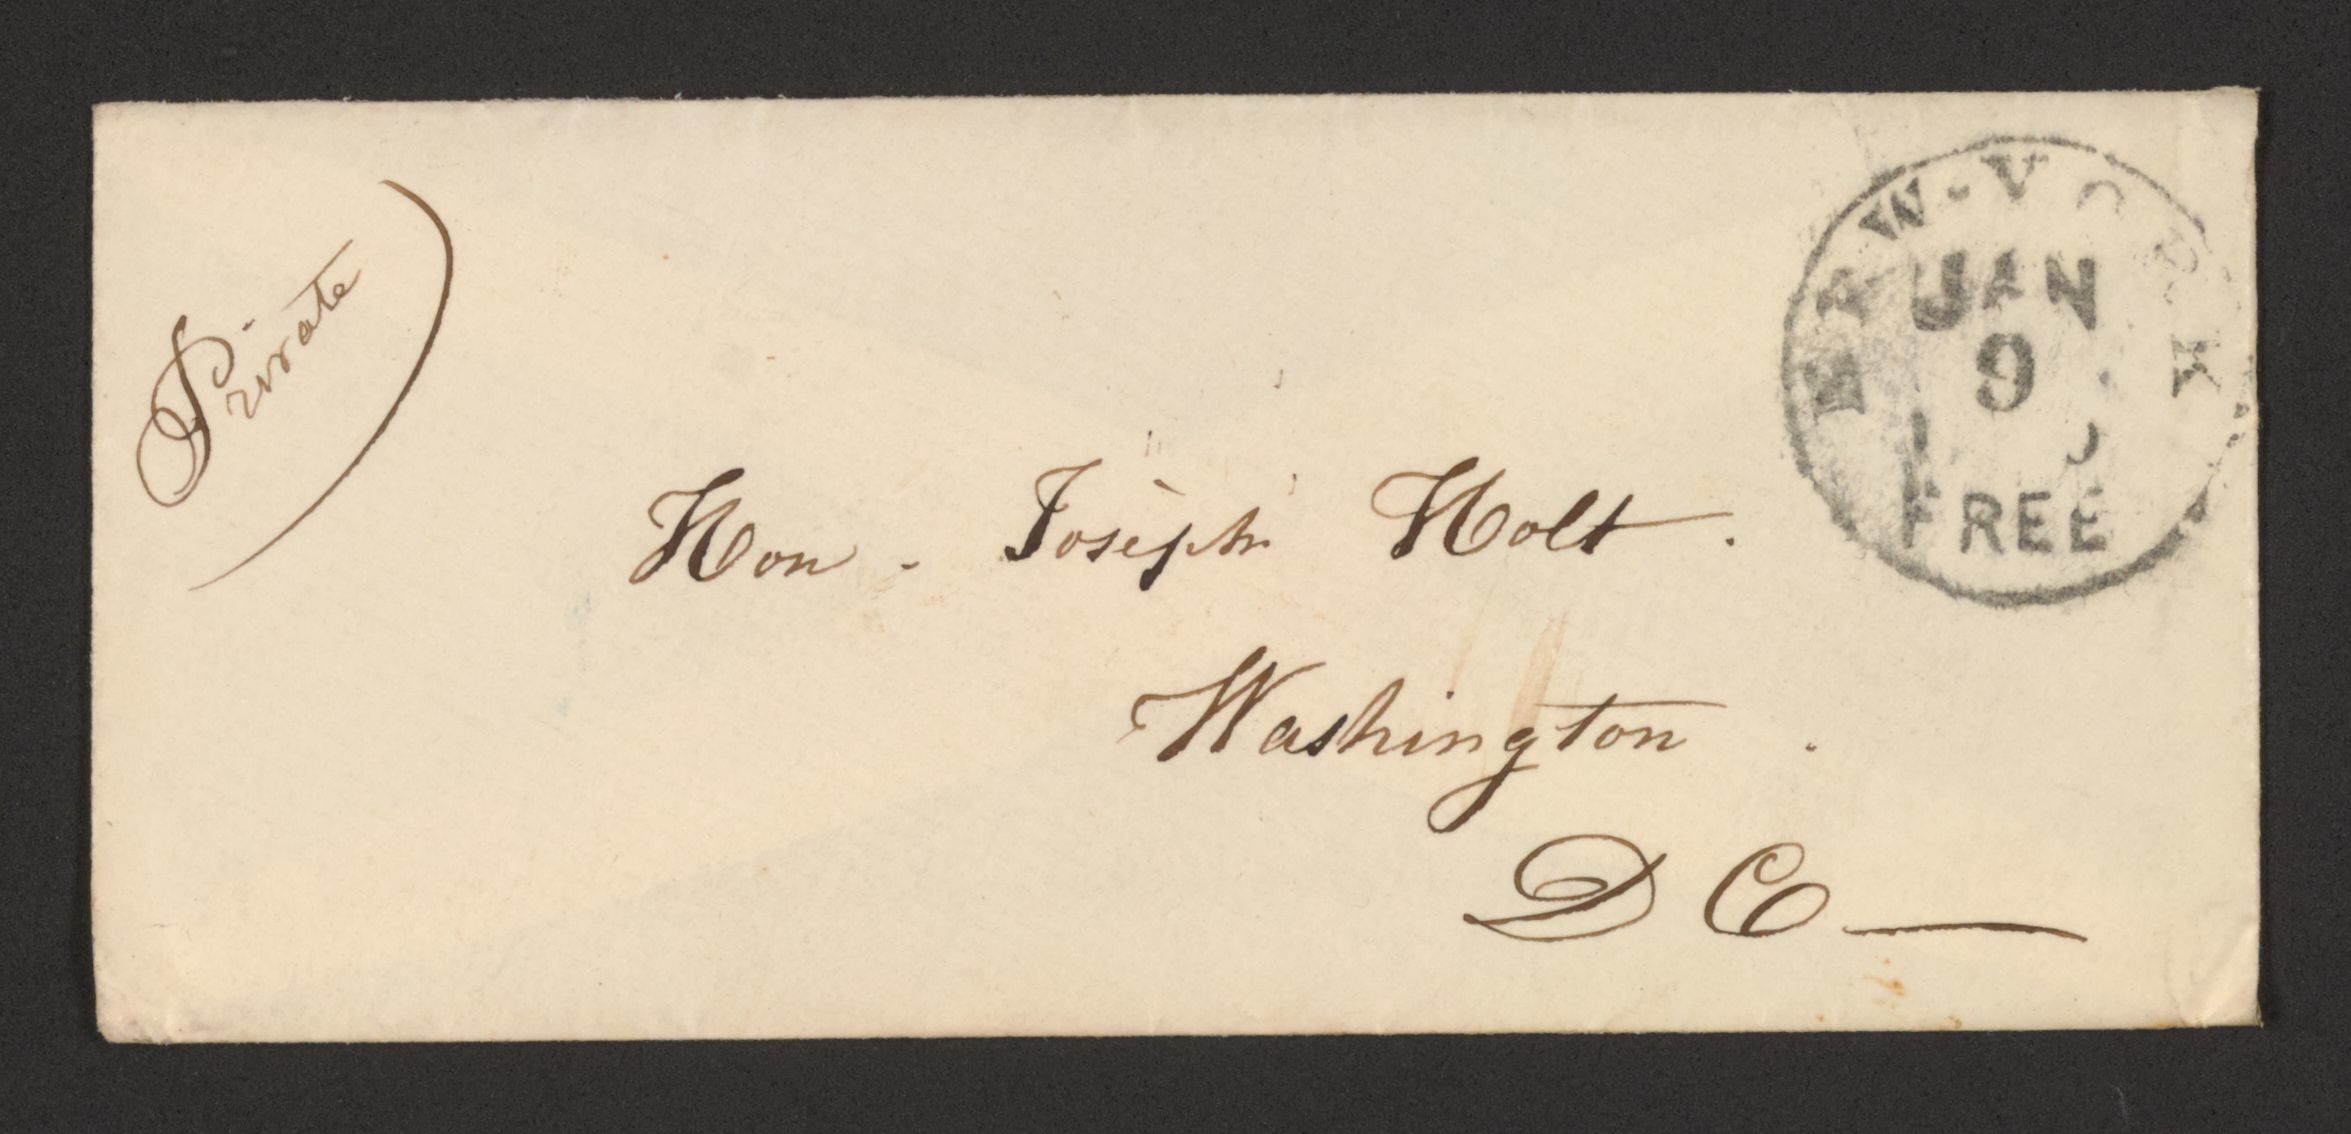 Private
NEW-YORK
JAN
9
FREE
Hon. Joseph Holt.
Washington.
D C—